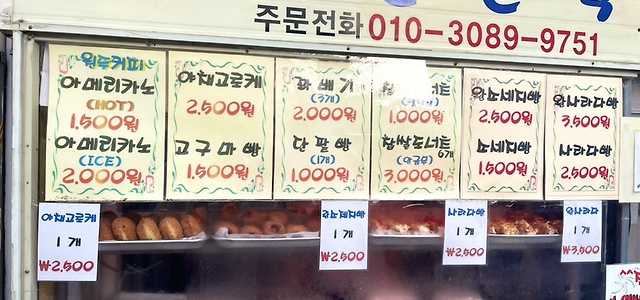 주문전화 010-3089-9751
원두커피
아메리카노
(HOT)
1.500원
아메리카노
(ICE)
2.000원
야채고로케
2.500원
고구마빵
1.500원
꽈배기
(3개)
2.000원
단팥빵
(1개)
1.000원
너트
1.000원
찹쌀도너트
6개
3.000원
왕소세지빵
2.500원
소세지빵
1.500원
왕사라다빵
3.500원
사라다빵
2.500원
야채고로케
1개
₩2,500
왕소세지빵
1개
₩2,500
사라다빵
1개
₩2,500
왕사라다
1개
₩3,500